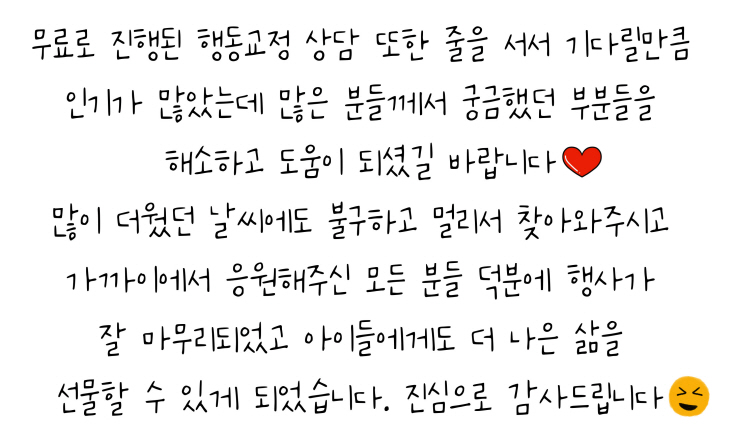 무료로 진행된 행동교정 상담 또한 줄을 서서 기다릴만큼
인기가 많았는데 많은 분들께서 궁금했던 부분들을
해소하고 도움이 되셨길 바랍니다❤️
많이 더웠던 날씨에도 불구하고 멀리서 찾아와주시고
가까이에서 응원해주신 모든 분들 덕분에 행사가
잘 마무리되었고 아이들에게도 더 나은 삶을
선물할 수 있게 되었습니다. 진심으로 감사드립니다😆